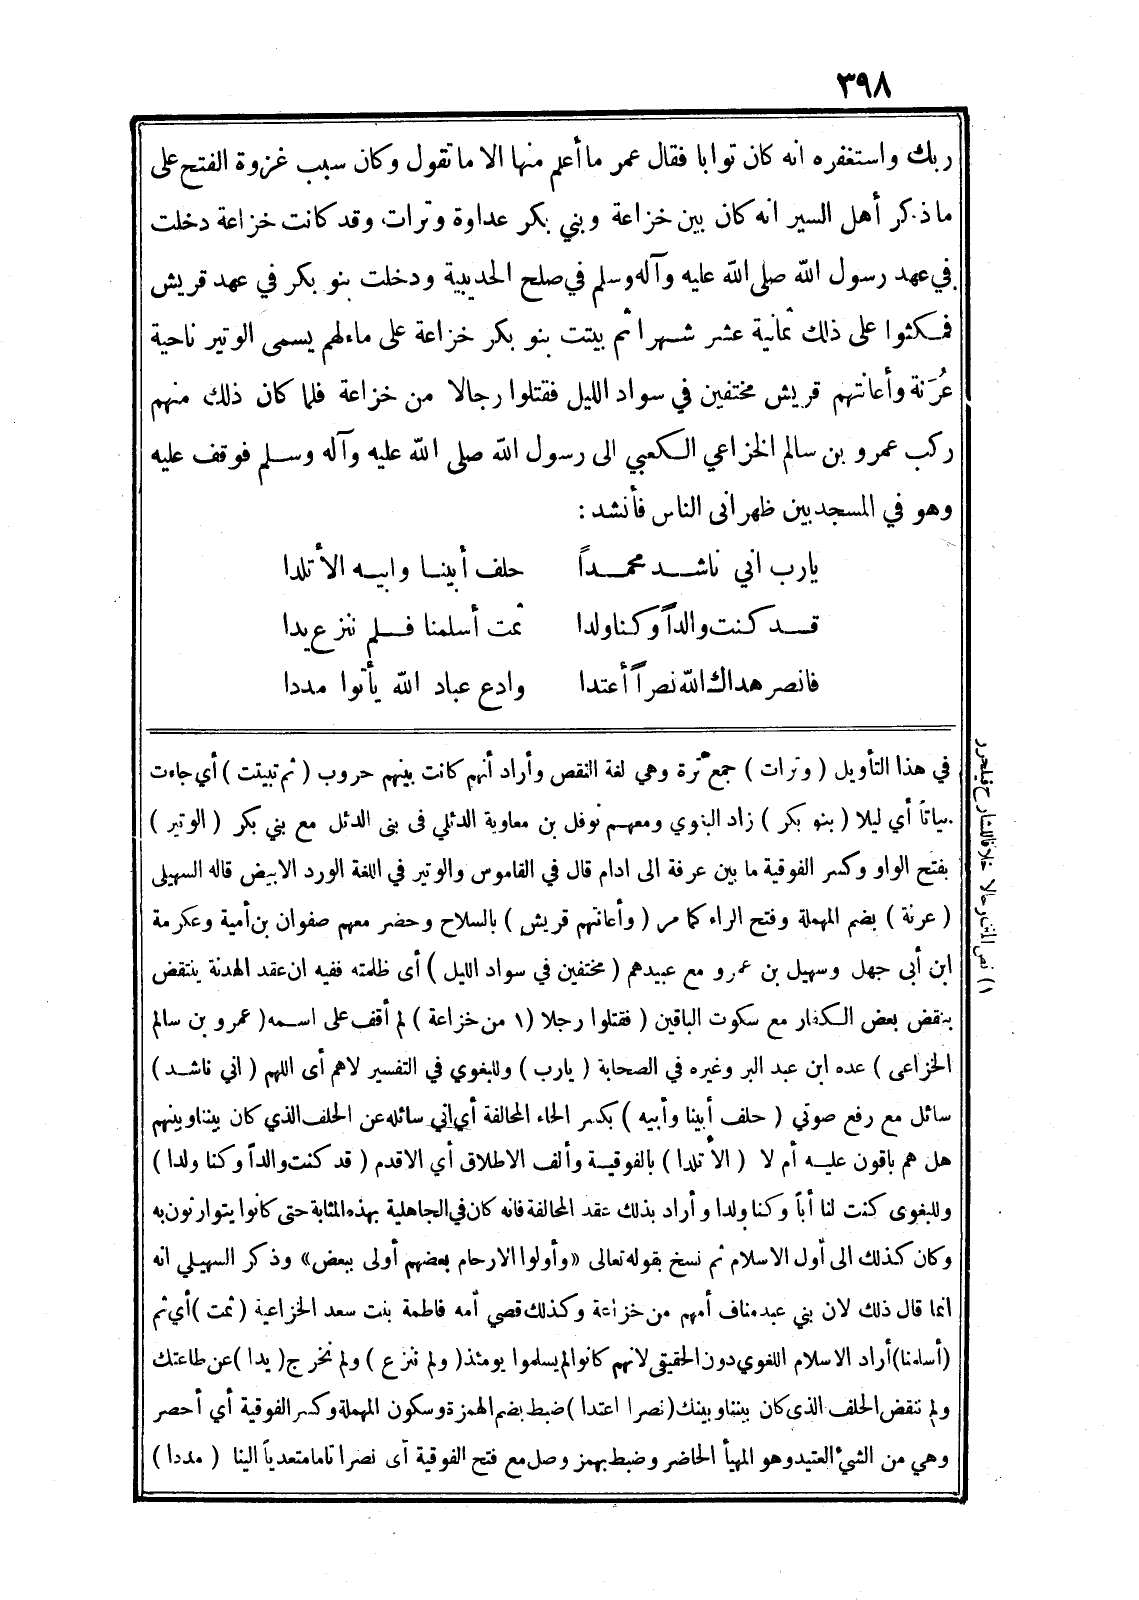 ٣٩٨
ربك واستغفره انه كان توابا فقال عمر ما أعلم منها الا ما تقول وكان سبب غزوة الفتح على
ما ذكر أهل السير انه كان بين خزاعة وبني بكر عداوة وترات وقد كانت خزاعة دخلت
في عهد رسول الله صلى الله عليه وآله وسلم في صلح الحديبية ودخلت بنو بكر في عهد قريش
فمكثوا على ذلك ثمانية عشر شهرا ثم بيتت بنو بكر خزاعة على ماء لهم يسمى الوتير ناحية
عُرَنة وأعانتهم قريش مختفين في سواد الليل فقتلوا رجالا من خزاعة فلما كان ذلك منهم
ركب عمرو بن سالم الخزاعي الكعبي الى رسول الله صلى الله عليه وآله وسلم فوقف عليه
وهو في المسجد بين ظهرانى الناس فأنشد :
يارب اني ناشد محمداً حلف أبينا وابيه الأتلدا
قد كنت والداً وكنا ولدا ثمت أسلمنا فلم ننزع يدا
فانصر هداك الله نصراً أعتدا وادع عباد الله يأتوا مددا
في هذا التأويل ( وترات ) جمع ترة وهي لغة النقص وأراد أنهم كانت بينهم حروب ( ثم تبيتت ) أي جاءت
بياتاً أي ليلا ( بنو بكر ) زاد البغوي ومعهم نوفل بن معاوية الدئلي فى بنى الدئل مع بني بكر ( الوتير )
بفتح الواو وكسر الفوقية ما بين عرفة الى ادام قال في القاموس والوتير في اللغة الورد الابيض قاله السهيلى
( عرنة ) بضم المهملة وفتح الراء كما مر ( وأعانتهم قريش ) بالسلاح وحضر معهم صفوان بن أمية وعكرمة
ابن أبي جهل وسهيل بن عمرو مع عبيدهم ( مختفين في سواد الليل ) أى ظلمته ففيه ان عقد الهدنة ينتقض
بنقض بعض الكفار مع سكوت الباقين ( فقتلوا رجلا (١ من خزاعة ) لم أقف على اسمه ( عمرو بن سالم
الخزاعى ) عده ابن عبد البر وغيره في الصحابة ( يارب ) وللبغوي في التفسير لاهم أى اللهم ( اني ناشد )
سائل مع رفع صوتي ( حلف أبينا وأبيه ) بكسر الحاء المحالفة أي اني سائله عن الحلف الذي كان بيننا وبينهم
هل هم باقون عليه أم لا ( الأتلدا ) بالفوقية وألف الاطلاق أي الاقدم ( قد كنت والداً وكنا ولدا )
وللبغوى كنت لنا أباً وكنا ولدا وأراد بذلك عقد المحالفة فانه كان في الجاهلية بهذه المثابة حتى كانوا يتوارثون به
وكان كذلك الى أول الاسلام ثم نسخ بقوله تعالى «وأولوا الارحام بعضهم أولى ببعض» وذكر السهيلي انه
انما قال ذلك لان بني عبد مناف أمهم من خزاعة وكذلك قصي أمه فاطمة بنت سعد الخزاعية ( ثمت ) أي ثم
(أسلمنا) أراد الاسلام اللغوي دون الحقيقى لانهم كانوا لم يسلموا يومئذ ( ولم ننزع ) ولم نخرج ( يدا ) عن طاعتك
ولم ننقض الحلف الذى كان بيننا وبينك ( نصرا اعتدا ) ضبط بضم الهمزة وسكون المهملة وكسر الفوقية أي أحصر
وهي من الشئ العتيد وهو المهيأ الحاضر وضبط بهمز وصل مع فتح الفوقية أى نصرا تاما متعدياً الينا ( مددا )
١) نص المتن رجالا خلافا للشارح فليحرر